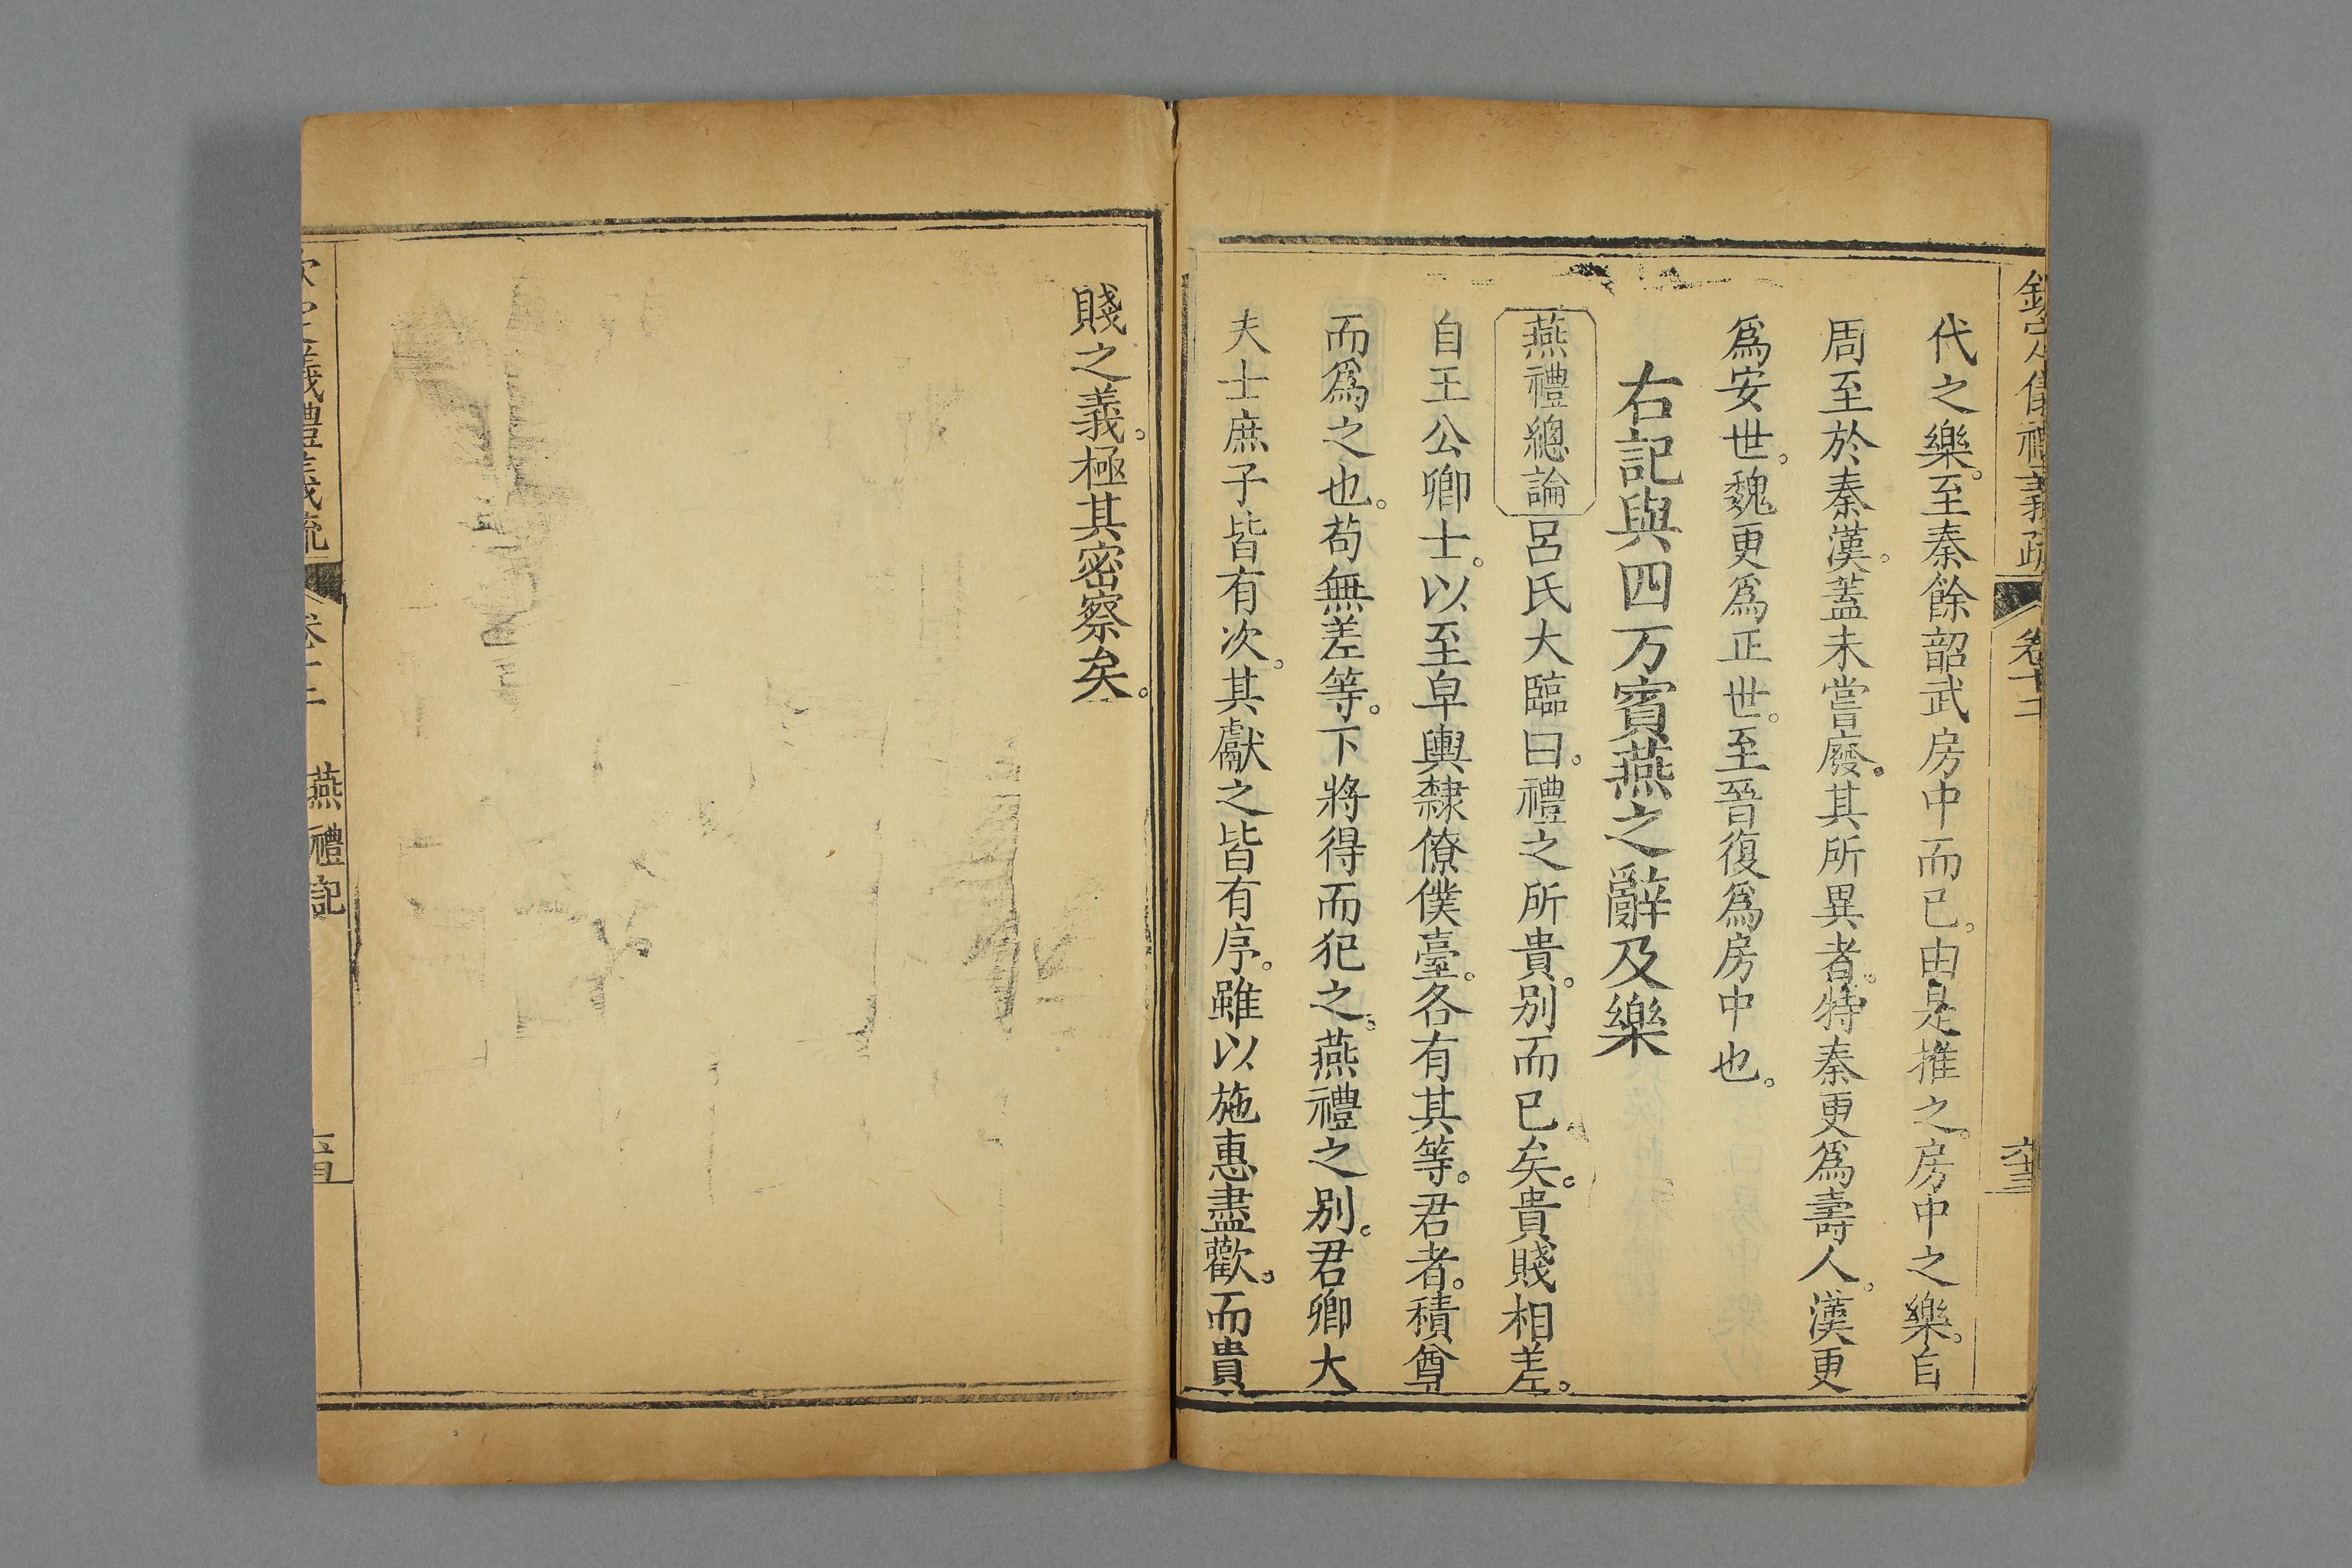 欽定儀禮義疏 卷十二
代之樂。至秦餘韶武房中而已。由是推之。房中之樂。自
周至於秦漢。蓋未嘗廢。其所異者。特秦更爲壽人。漢更
爲安世。魏更爲正世。至晉復爲房中也。
右記與四方賓燕之辭及樂
燕禮總論 呂氏大臨曰。禮之所貴。别而已矣。貴賤相差。
自王公卿士。以至皁輿隸僚僕臺。各有其等。君者。積尊
而爲之也。苟無差等。下將得而犯之。燕禮之别。君卿大
夫士庶子皆有次。其獻之皆有序。雖以施惠盡歡。而貴
賤之義。極其密察矣。
欽定儀禮義疏 卷十二 燕禮記